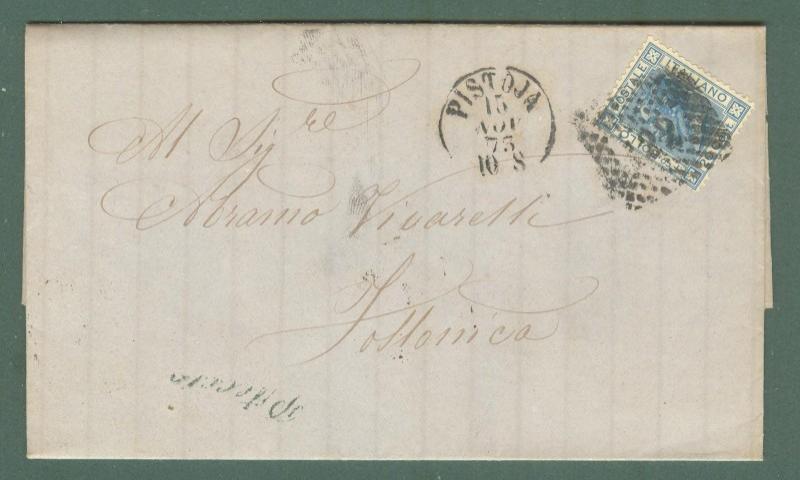 PISTOJA
15
NOV
73
10 S
BOLLO POSTALE ITALIANO
Al Sigre
Abramo Vivarelli
Follonica